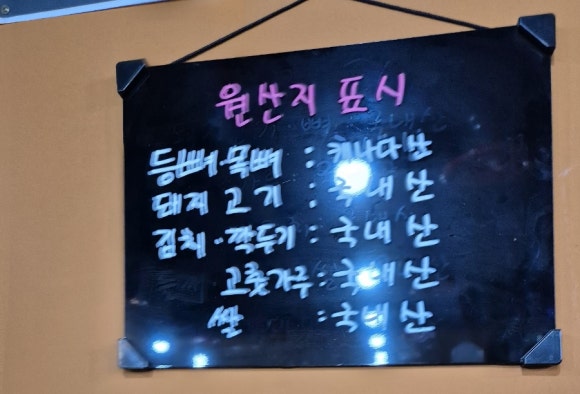 원산지 표시
등뼈·목뼈 : 캐나다산
돼지고기 : 국내산
김치·깍두기 : 국내산
고춧가루 : 국내산
쌀 : 국내산